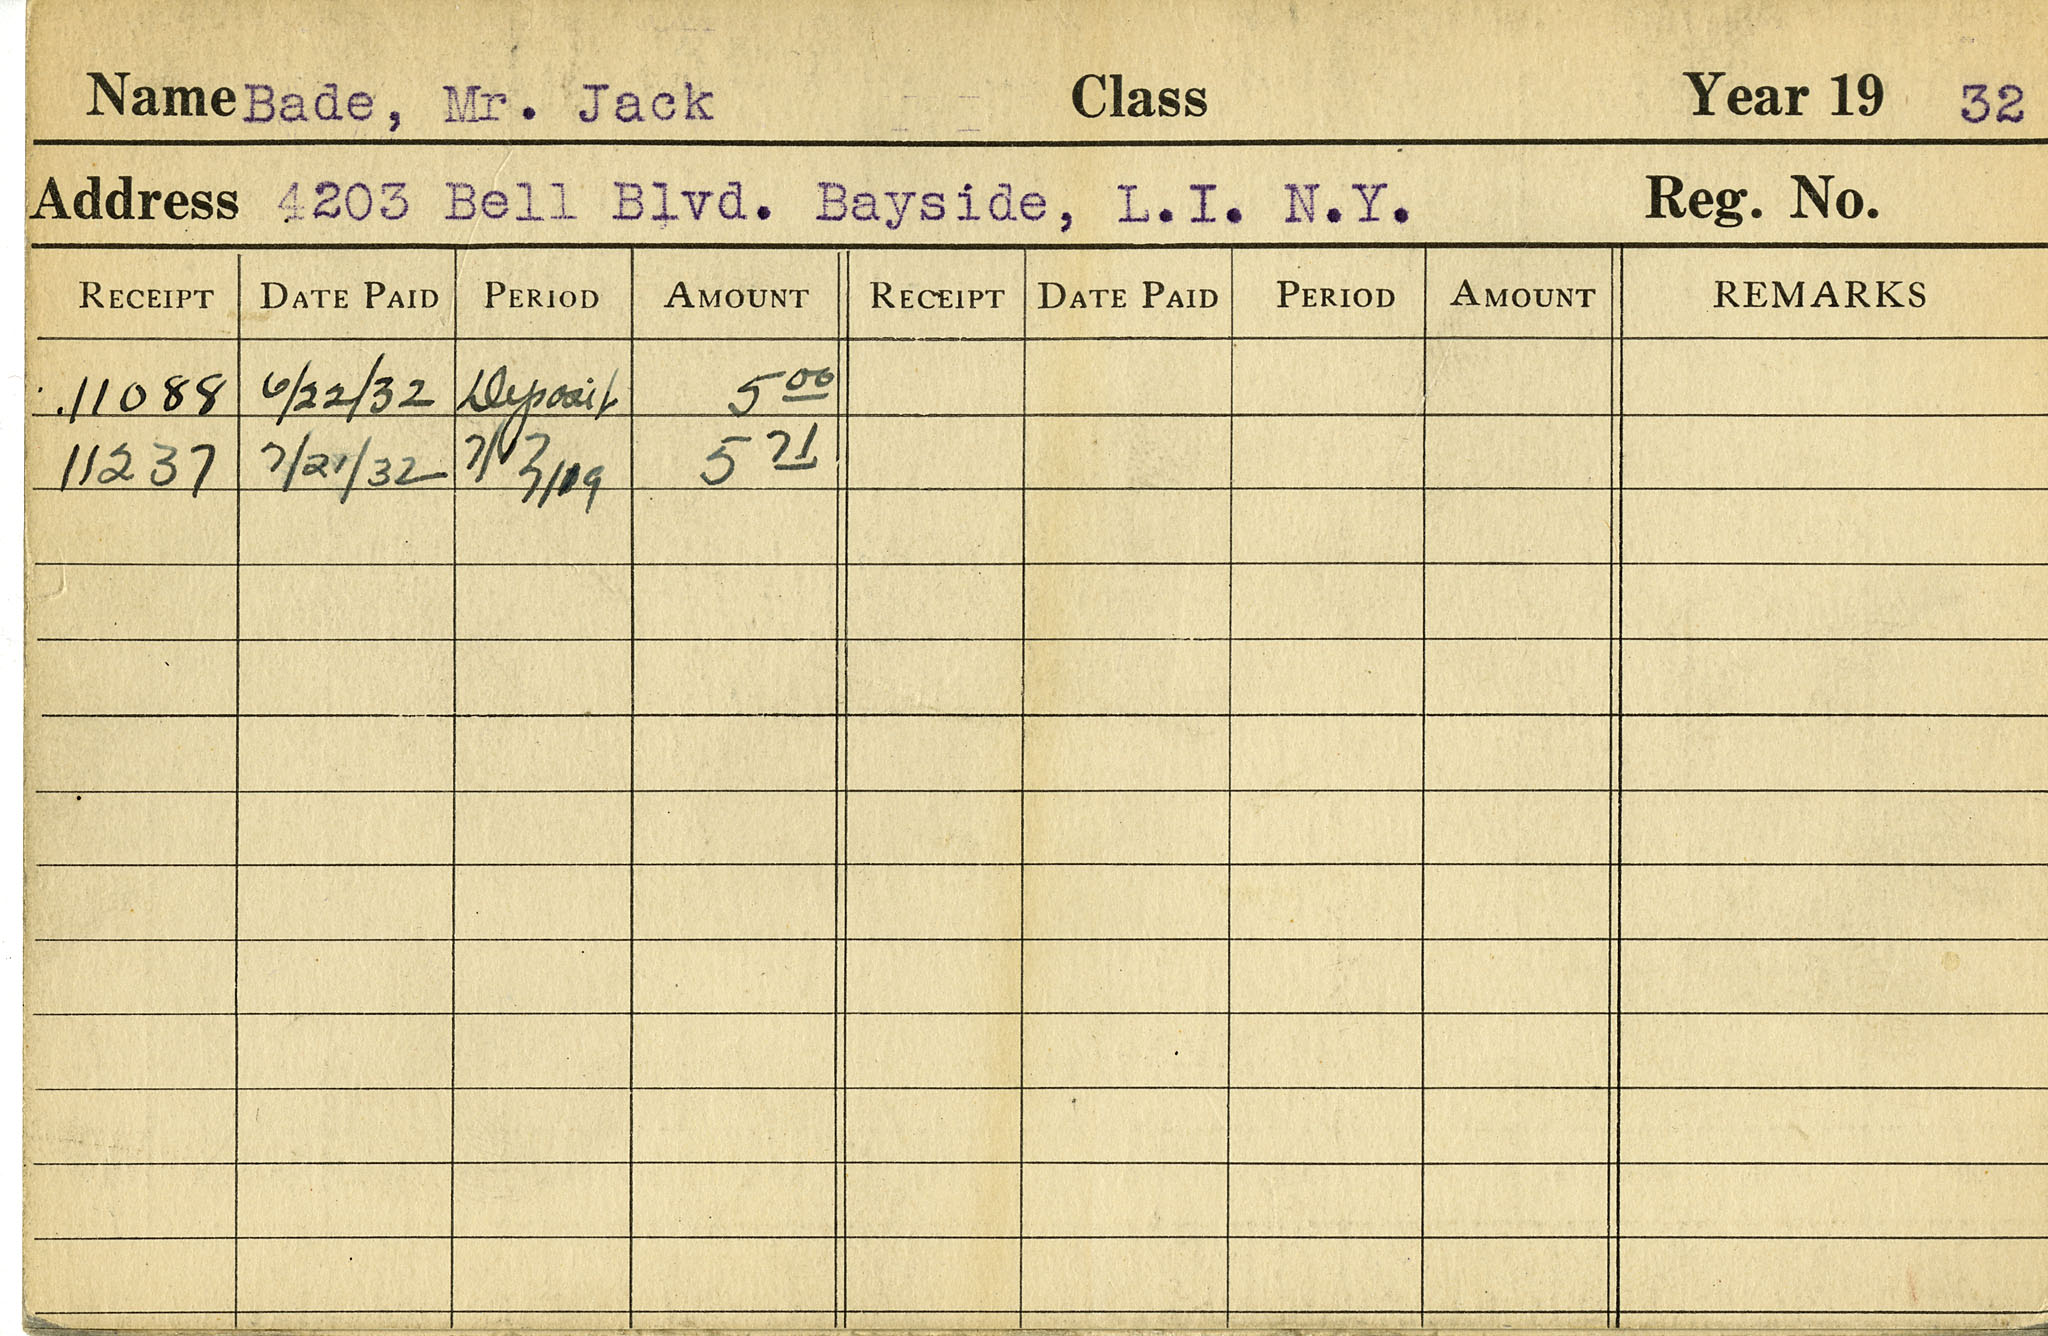 Name Bade, Mr. Jack Class Year 19 32
Address 4203 Bell Blvd. Bayside, L.I. N.Y. Reg. No.
RECEIPT DATE PAID PERIOD AMOUNT RECEIPT DATE PAID PERIOD AMOUNT REMARKS
11088 6/22/32 Deposit 5 00
11237 7/27/32 7/17 7/19 5 71